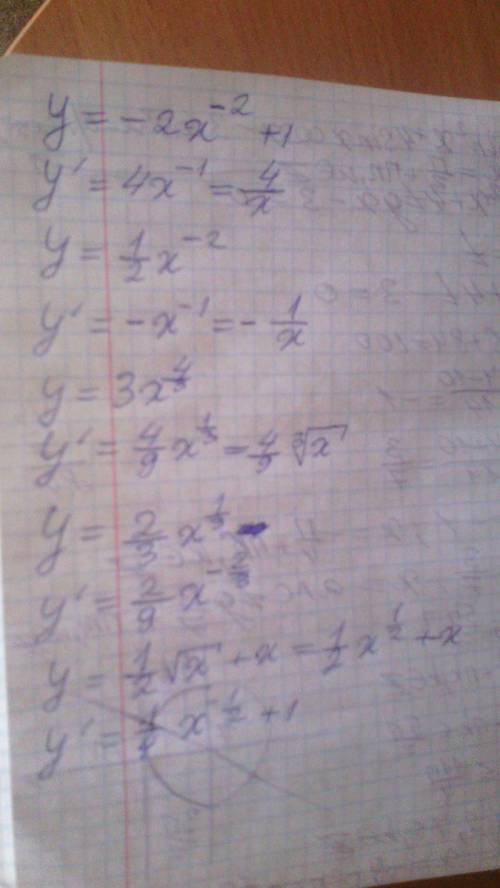 y = -2x^{-2} + 1
y' = 4x^{-1} = \frac{4}{x}
y = \frac{1}{2}x^{-2}
y' = -x^{-1} = -\frac{1}{x}
y = 3x^{\frac{4}{3}}
y' = \frac{4}{9}x^{\frac{1}{3}} = \frac{4}{9}\sqrt[3]{x}
y = \frac{2}{3}x^{\frac{1}{3}}
y' = \frac{2}{9}x^{-\frac{2}{3}}
y = \frac{1}{2}\sqrt{x} + x = \frac{1}{2}x^{\frac{1}{2}} + x
y' = \frac{1}{4}x^{-\frac{1}{2}} + 1